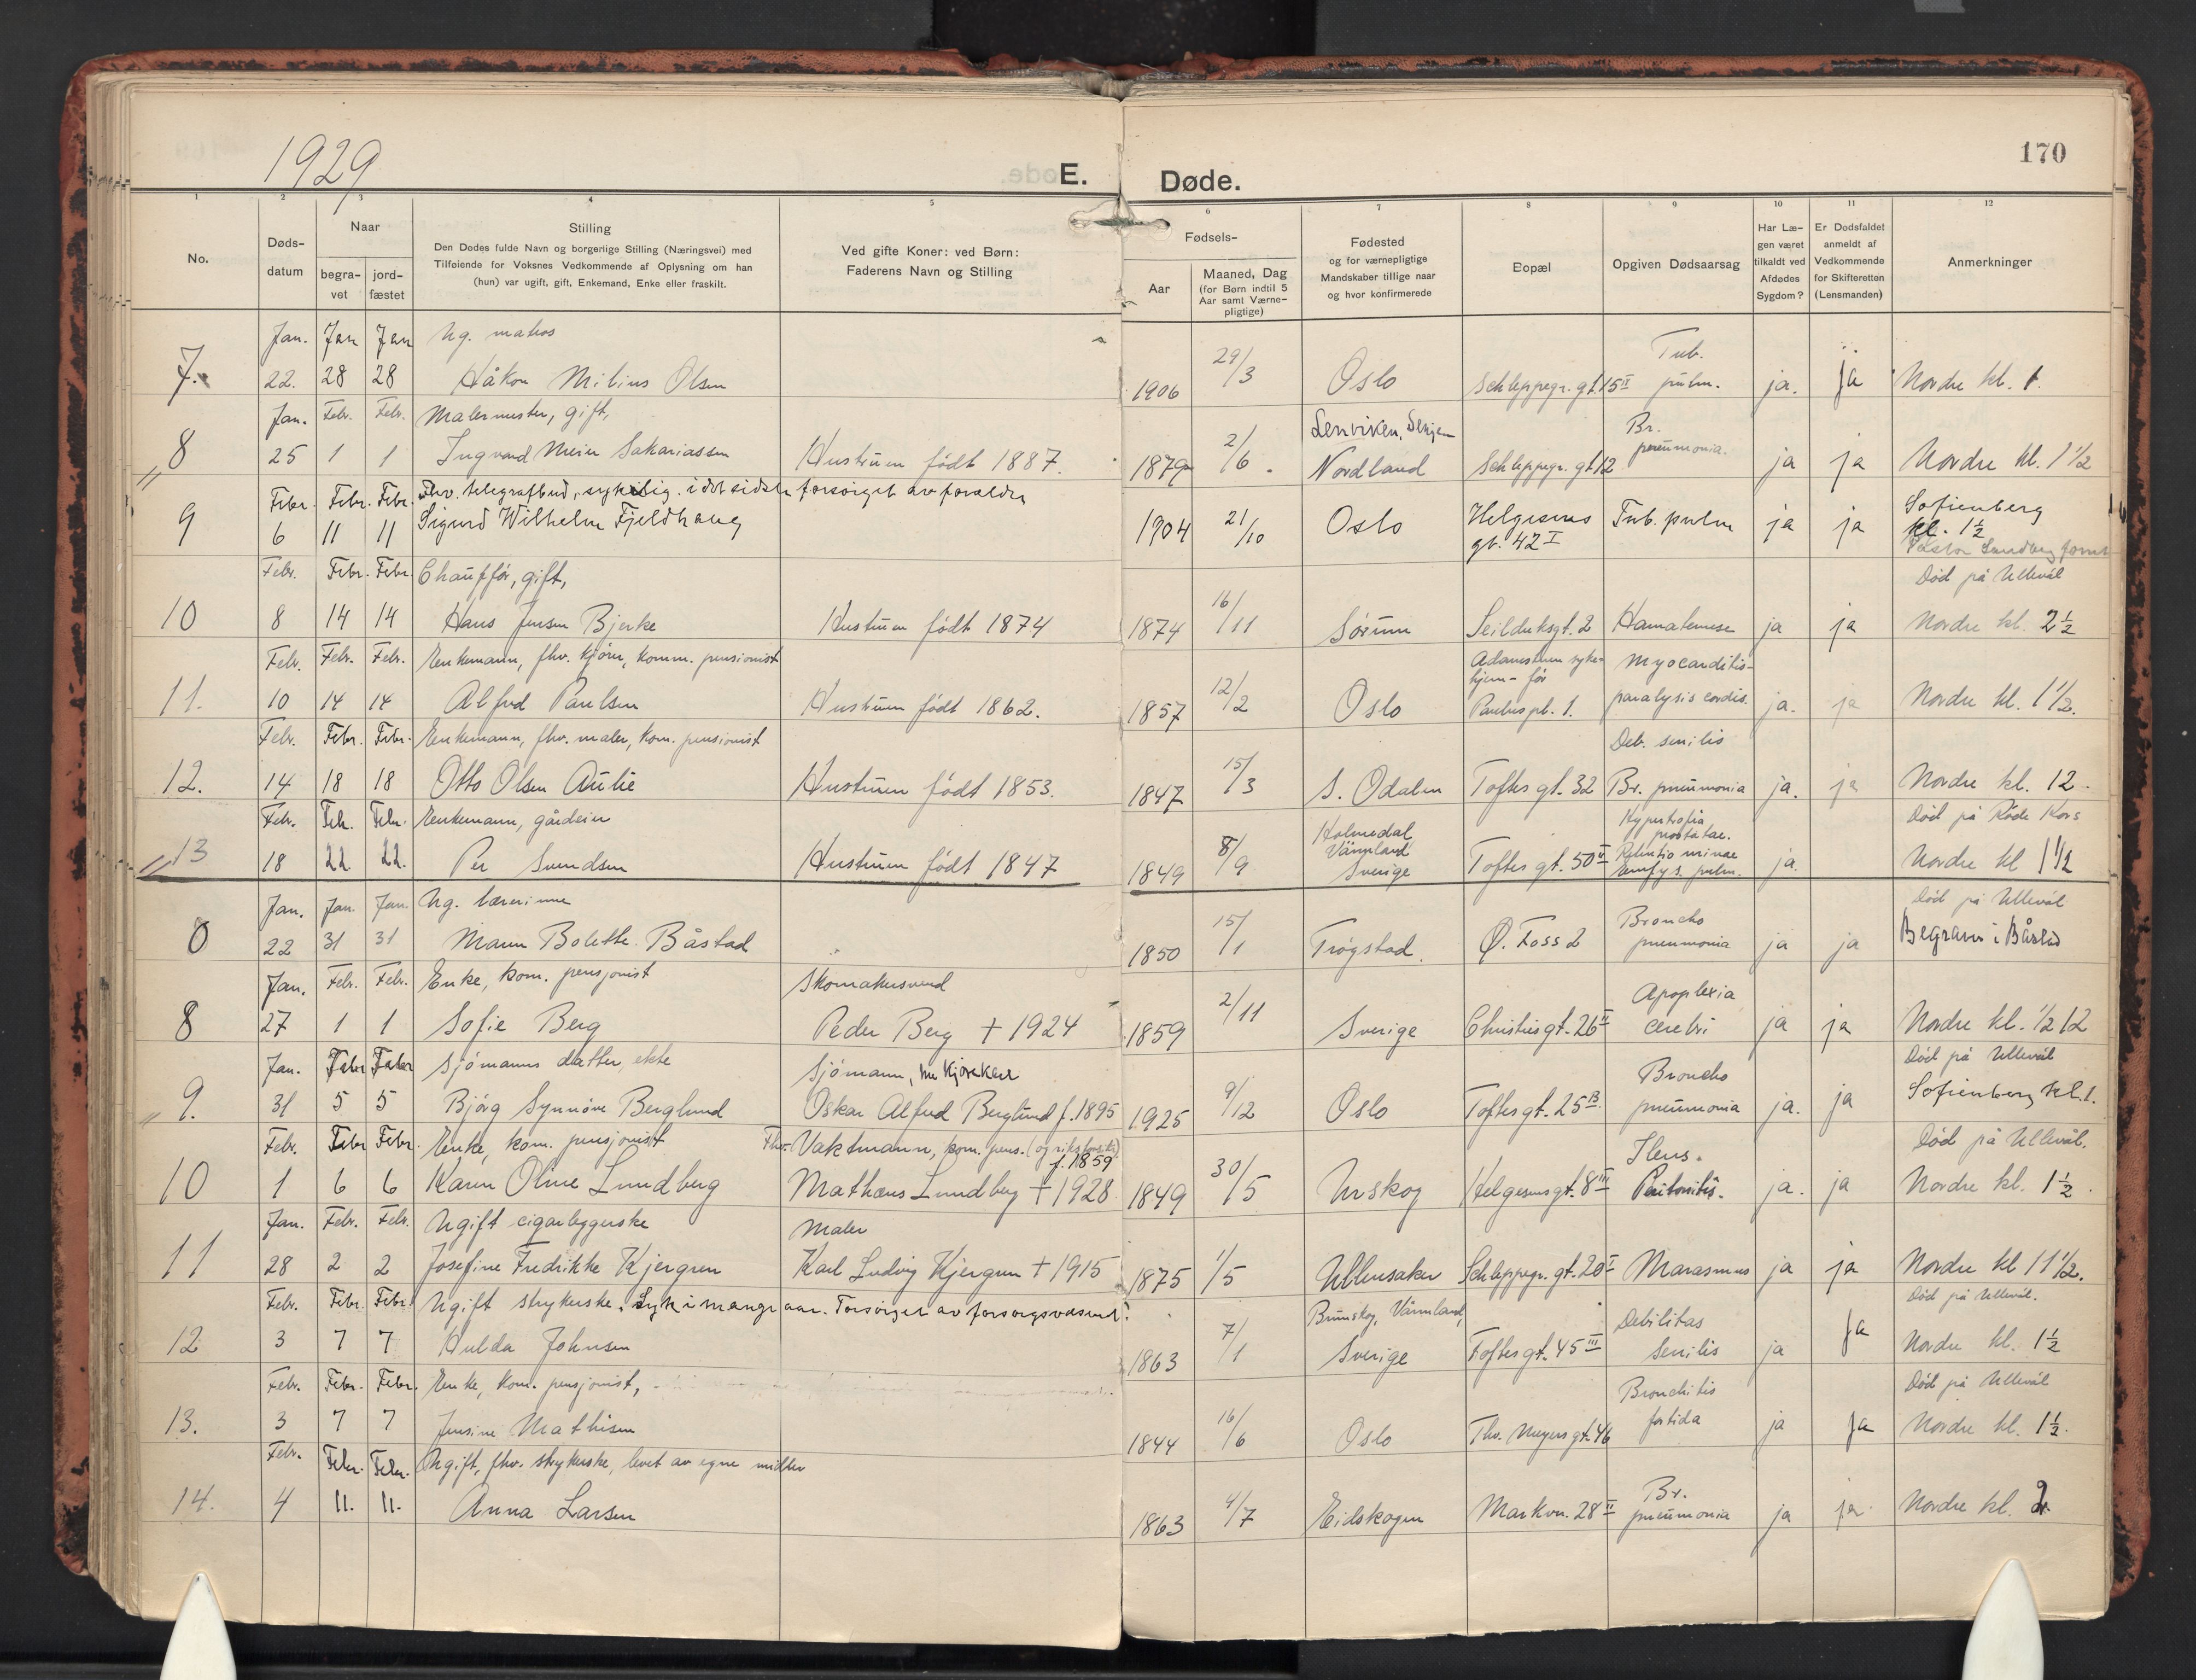 1929
E. Døde.
170
1 2 3 4 5 6 7 8 9 10 11 12
No.
Døds-
datum
Naar
begra-
vet
jord-
fæstet
Stilling
Den Dødes fulde Navn og borgerlige Stilling (Næringsvei) med
Tilføiende for Voksnes Vedkommende af Oplysning om han
(hun) var ugift, gift, Enkemand, Enke eller fraskilt.
Ved gifte Koner: ved Børn:
Faderens Navn og Stilling
Fødsels-
Aar
Maaned, Dag
(for Børn indtil 5
Aar samt Værne-
pligtige)
Fødested
og for værnepligtige
Mandskaber tillige naar
og hvor konfirmerede
Bopæl
Opgiven Dødsaarsag
Har Læ-
gen været
tilkaldt ved
Afdødes
Sygdom?
Er Dødsfaldet
anmeldt af
Vedkommende
for Skifteretten
(Lensmanden)
Anmerkninger
Jan. Jan Jan Ug. matros Tub.
7. 22. 28 28 Håkon Milius Olsen 1906 29/3 Oslo Schleppegr. gt. 15 II pulm. ja. ja Nordre kl. 1.
Jan. Febr. Febr. Malermester, gift, Lenviken, Senjen Br.
8 25 1 1 Ingvard Meier Sakariassen Hustruen født 1887. 1879 2/6 Nordland Schleppegr. gt 12 pneumonia. ja ja Nordre kl. 1 1/2
Febr. Febr. Febr. Fhv. telegrafbud, sykelig. i det sidste forsørget av forældre
9 6 11 11 Sigurd Wilhelm Fjeldhaug 1904 21/10 Oslo Helgesens gt. 42 I Tub. pulm ja ja Sofienberg kl. 1 1/2
Pastor Sandberg forret
Febr. Febr. Febr. Chauffør, gift, Død på Ullevål
10 8 14 14 Hans Jensen Bjerke Hustruen født 1874 1874 16/11 Sørum Seilduksgt. 2 Hamatemese ja ja Nordre kl. 2 1/2
Febr. Febr. Febr. Enkemann, fhv. kjører, komm. pensionist Adamstuen syke- Myocarditis-
hjem - før
11. 10 14 14 Alfred Paulsen Hustruen født 1862. 1857 12/2 Oslo Paulus pl. 1. paralysis cordis. ja. ja Nordre kl. 1 1/2.
Febr. Febr. Febr. Enkemann, fhv. maler, kom. pensionist Deb. senilis
12. 14 18 18 Otto Olsen Aulie Hustruen født 1853. 1847 15/3 S. Odalen Toftes gt. 32 Br. pneumonia ja. ja Nordre kl. 12.
Febr. Feb. Febr. Enkemann, gårdeier Holmedal Hypertrofia prostatae. Død på Røde Kors
Värmland Retentio urinae
13 18 22 22. Per Svendsen Hustruen født 1847 1849 8/9 Sverige Toftes gt. 50 II Emfys. pulm. ja. Nordre kl 1 1/2
Jan. Jan. Jan. Ug. lærerinne Broncho Død på Ullevål
22 31 31 Maren Bolette Båstad 1850 15/1 Trøgstad. Ø. Foss 2 pneumonia ja ja Begraves i Båstad
Jan. Febr. Febr. Enke, kom. pensjonist Skomakersvend Apoplexia
8 27 1 1 Sofie Berg Peder Berg † 1924 1859 2/11 Sverige Christiesgt. 26 II cerebri ja ja Nordre kl. 1/2 12
Jan. Febr Febr Sjømanns datter, ekte Sjømann, nu kjørekar Broncho Død på Ullevål
9. 31 5 5 Bjørg Synnøve Berglund Oskar Alfred Berglund f. 1895 1925 9/12 Oslo Toftes gt. 25 B. pneumonia ja. ja Sofienberg kl. 1.
Febr. Febr Febr. Enke, kom. pensjonist Fhv. Vaktmann, kom. pens. Ileus. Død på Ullevål.
f. 1859
10 1 6 6 Karen Oline Lundberg Mathæus Lundberg † 1928 1849 30/5 Urskog Helgesens gt. 8 III Peritonitis. ja. ja Nordre kl. 1 1/2.
Jan. Febr. Febr. Ugift cigarleggerske Maler
11 28 2 2 Josefine Fredrikke Kjergren Karl Ludvig Kjergren † 1915 1875 1/5 Ullensaker Schleppegr. gt. 20 I Marasmus ja ja Nordre kl 11 1/2.
Febr. Febr. Febr. Ugift strykerske. Syk i mange aar. Forsørget av forsorgsvæsenet. Brunskog, Värmland, Debilitas Død på Ullevål.
12 3 7 7 Hulda Johnsen 1863 7/1 Sverige Toftes gt. 45 III Senilis ja ja Nordre kl. 1 1/2
Febr. Febr. Febr. Enke, kom. pensjonist, Bronchitis Død på Ullevål
13. 3 7 7 Jensine Mathisen 1844 16/6 Oslo Ths. Meyers gt. 46 foetida ja ja Nordre kl. 1 1/2.
Febr. Febr. Febr. Ugift, fhv. strykerske, levet av egne midler Br.
14. 4 11. 11. Anna Larsen 1863 4/7 Eidskogen Markvn. 28 II pneumonia ja ja. Nordre kl. 2.